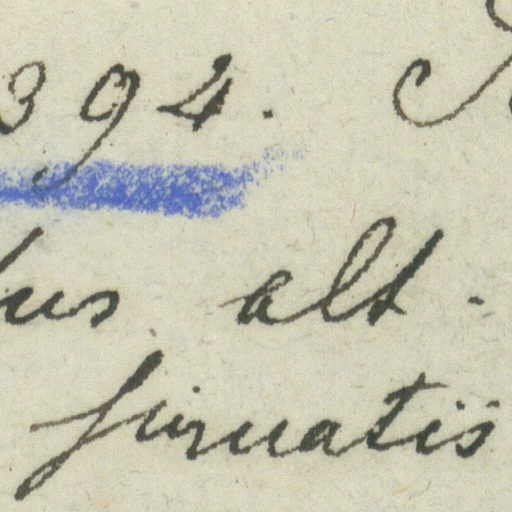 394.
us alt.
sinuatis